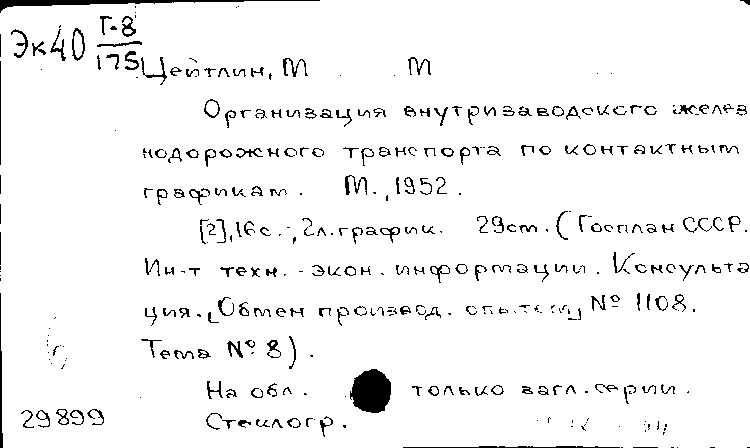 Эк40 Г-8/175
Цейтлин, М М
Организация внутризаводского желез
нодорожного транспорта по контактным
графикам. М., 1952.
[2], 16с., 2л.график. 29см. (Госплан СССР.
Ин-т техн.-экон. информации. Консульта
ция. [Обмен производ. опытом] № 1108.
Тема № 8).
На обл. только загл. серии.
29899 Стеклогр.